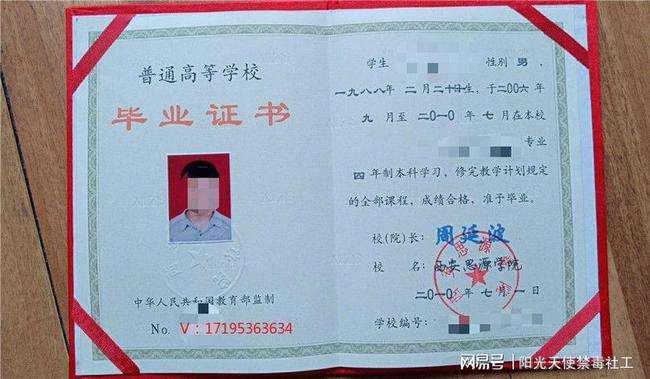 普通高等学校
毕业证书
中华人民共和国教育部监制
No. V：17195363634
学生 性别 男，
一九八八年 二月二十日生，于二00六年
九 月至 二0一0 年 七 月在本校
专业
四 年制本科学习，修完教学计划规定
的全部课程，成绩合格，准予毕业。
校(院)长： 周延波
校 名： 西安思源学院
二0一0 年 七 月 一 日
学校编号：
网易号 | 阳光天使禁毒社工